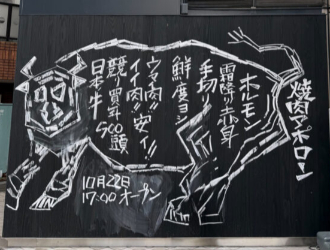 焼肉アポロ一
ホルモン
霜降り赤身
手切り
鮮度ヨシ
ウマ肉!!安イ!!
イイ肉!!
競り買弐500頭
日本一牛
10月22日
17:00オープン